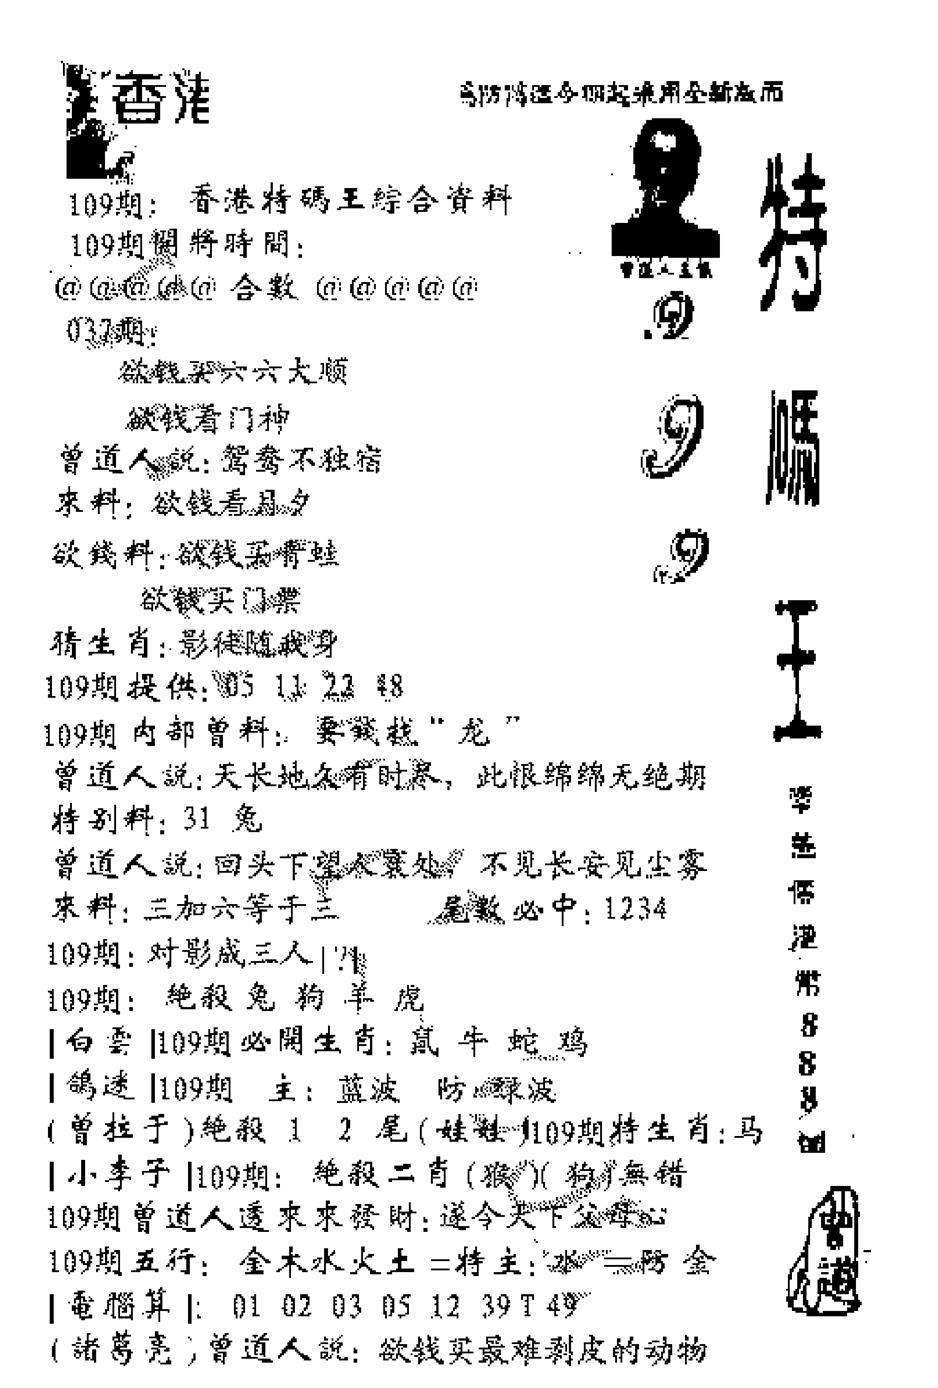 香港
防 今 起采用全新版面
109期: 香港特碼王綜合資料
109期攔將時間:
@@@@@ 合數 @@@@@
032期:
欲钱买六六大顺
欲钱看门神
曾道人説:鸳鸯不独宿
來料: 欲钱看月夕
欲錢料:欲钱买青蛙
欲钱买门票
猜生肖:影徒随我身
109期提供:05 11 22 48
109期内部曾料: 要錢找“龙”
曾道人説:天长地久有时寒,此恨绵绵无绝期
特别料: 31 兔
曾道人説:回头下望人寰处 不见长安见尘雾
來料: 三加六等于三 尾數必中: 1234
109期:对影成三人|?|
109期: 絶殺 兔 狗 羊 虎
|白雲|109期必開生肖: 鼠 牛 蛇 鸡
|鴿迷|109期 主: 蓝波 防 绿波
(曾拉于)絶殺 1 2 尾(娃娃)109期特生肖:马
|小李子|109期: 絶殺二肖(猴)(狗)無错
109期曾道人透來來發財:遂令天下父母心
109期五行: 金木水火土=特主: 水 =防 金
|電腦算|: 01 02 03 05 12 39 T 49
(諸葛亮)曾道人説: 欲钱买最难剥皮的动物
曾道人主
9
9
9
特
碼
王
港
幣
8
8
8
曾道